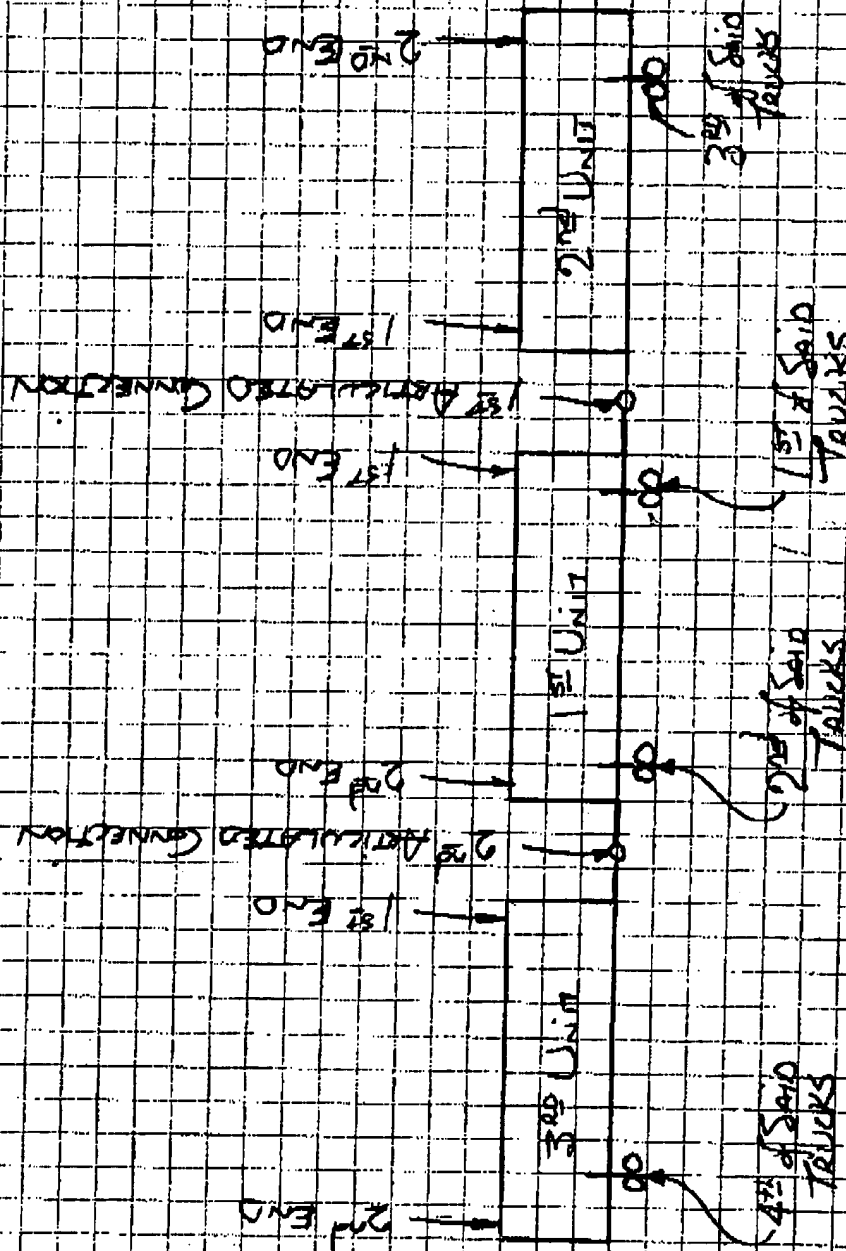 2ND
END
2nd UNIT
3RD of SAID
TRUCKS
1ST END
1ST ARTICULATED CONNECTION
1ST END
1ST of SAID
TRUCKS
1ST UNIT
2nd of SAID
TRUCKS
2nd END
2nd ARTICULATED CONNECTION
1ST END
3RD UNIT
4th of SAID
TRUCKS
2nd
END